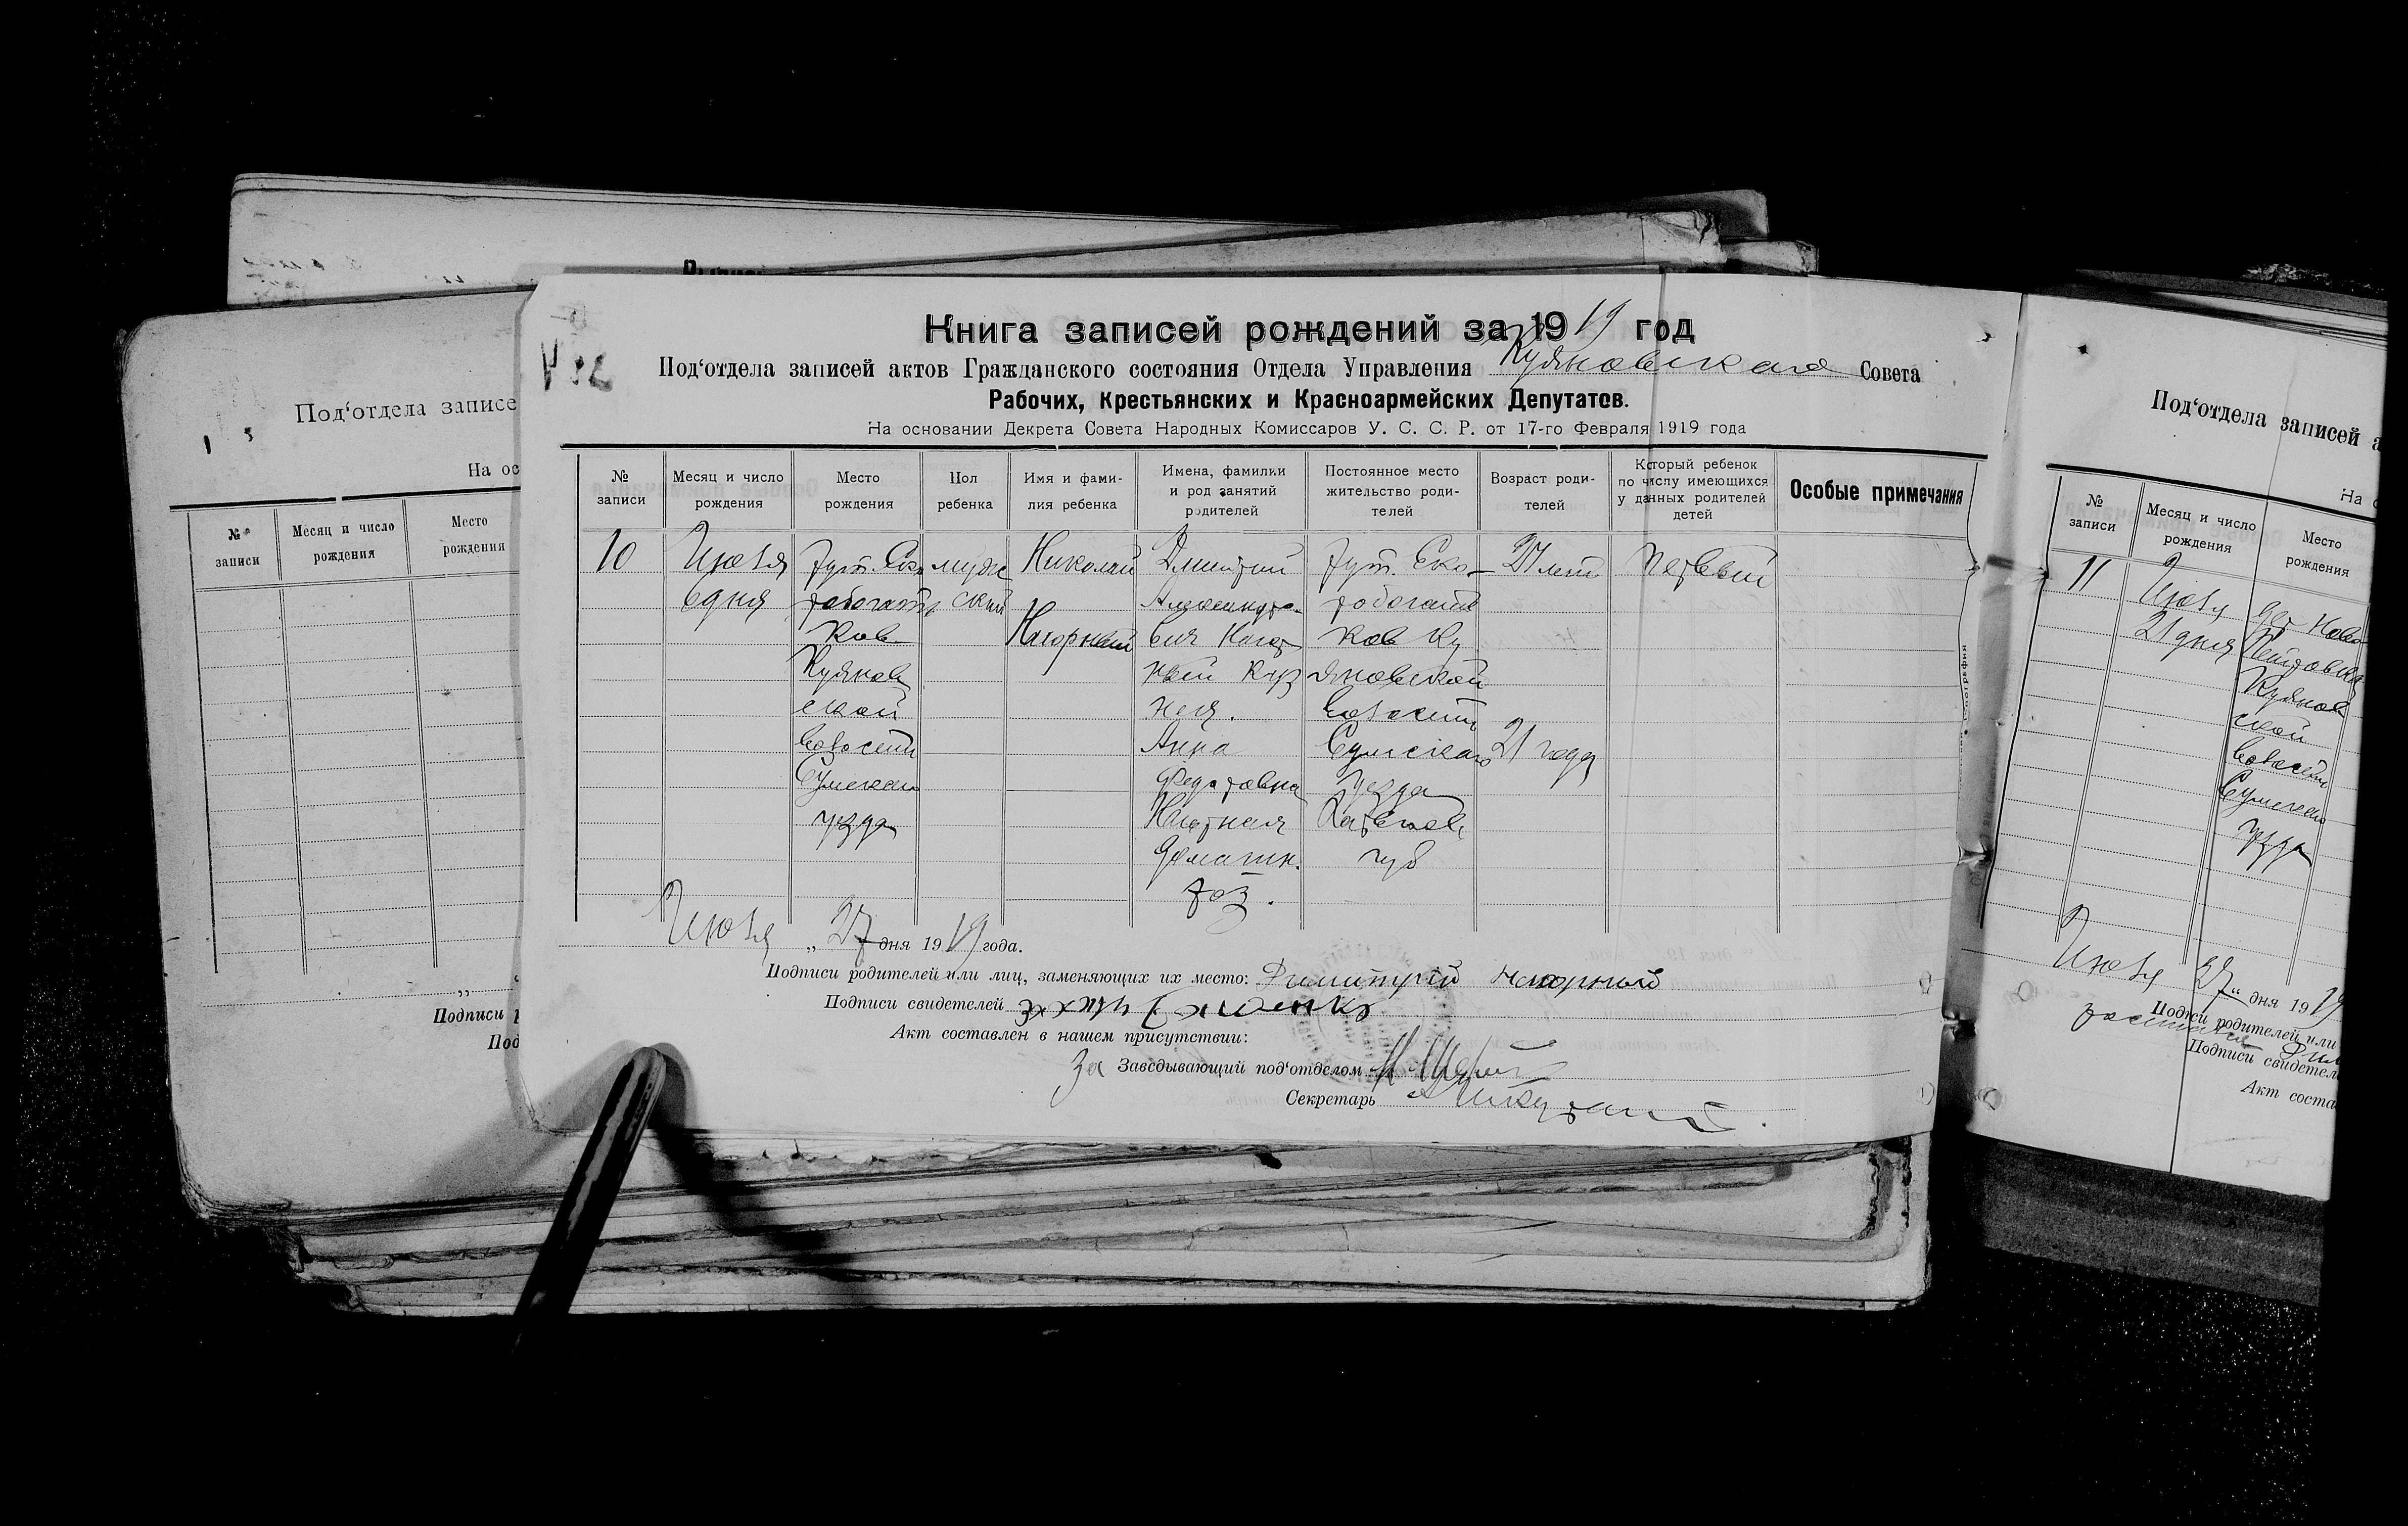 Книга записей рождений за 1919 год
Под‘отдела записей актов Гражданского состояния Отдела Управления Куяновскаго Совета
Рабочих, Крестьянских и Красноармейских Депутатов.
На основании Декрета Совета Народных Комиссаров У. С. С. Р. от 17-го Февраля 1919 года
№ записи
Месяц и число рождения
Место рождения
Пол ребенка
Имя и фами-
лия ребенка
Имена, фамилии
и род занятий
родителей
Постоянное место
жительство роди-
телей
Возраст роди-
телей
Который ребенок
по числу имеющихся
у данных родителей
детей
Особые примечания
10
Июля
6 дня
хут.
Куянов
ской
волости
Сумскаго
уезда
муж
ской
Николай
Нагорный
Дмитрий
Анна
Федотовна
Нагорная
домашн.
хоз.
хут.
ков Ку
яновской
волости
Сумскаго
уезда
Харьков
губ
27 лет
21 года
первый
Июля „ 27 дня 1919 года.
Подписи родителей или лиц, заменяющих их место: Димитрий Нагорный
Подписи свидетелей
Акт составлен в нашем присутствии:
За Заведывающий под‘отделом
Секретарь
Под‘отдела записе
На ос
№
записи
Месяц и число
рождения
Место
рождения
„
Подписи р
Под
Под‘отдела записей а
На о
№
записи
Месяц и число
рождения
Место
рождения
11
Июля
21 дня
Куянов
ской
волости
Сумскаго
уезда
Июля 27 „ дня 1919
Подписи родителей или
Подписи свидетел
Акт соста